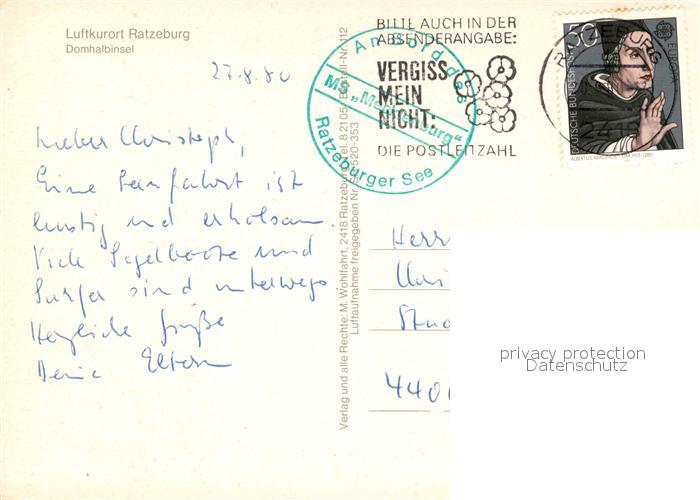 Luftkurort Ratzeburg
Domhalbinsel
27.8.80
Lieber Christoph,
Eine Seefahrt ist
lustig und erholsam.
Viele Segelboote und
Surfer sind unterwegs
Herzliche Grüße
Deine Eltern
Verlag und alle Rechte: M. Wohlfahrt, 2418 Ratzeburg Tel. 8 2105 Bestell-Nr. 112
Luftaufnahme freigegeben Nr. 520-353
An Bord des
MS „Mecklenburg“
Ratzeburger See
BITTE AUCH IN DER
ABSENDERANGABE:
VERGISS
MEIN
NICHT:
DIE POSTLEITZAHL
RATZEBURG
2418
50
DEUTSCHE BUNDESPOST
EUROPA
ALBERTUS MAGNUS 1193-1280
Herr
440
privacy protection
Datenschutz